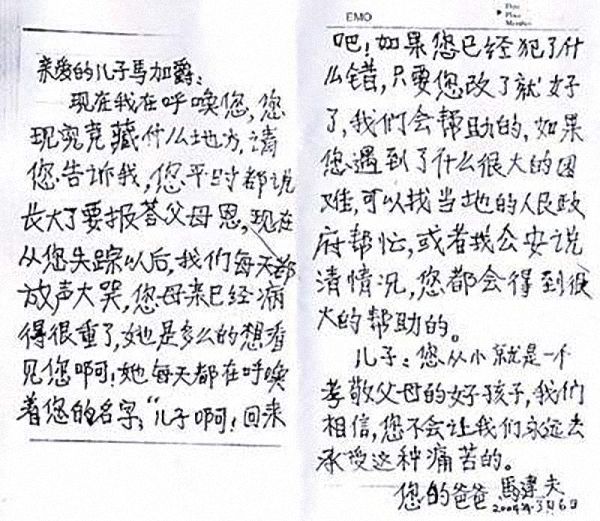 亲爱的儿子馬加爵：
现在我在呼唤您，您
现究竟藏什么地方，请
您告诉我，您平时都说
长大了要报答父母恩，现在
从您失踪以后，我们每天都
放声大哭，您母亲已经病
得很重了，她是多么的想看
见您啊！她每天都在呼唤
着您的名字；“儿子啊！回来
EMO
吧！如果您已经犯了什
么错，只要您改了就好
了，我们会帮助的，如果
您遇到了什么很大的困
难，可以找当地的人民政
府帮忙，或者找公安说
清情况，您都会得到很
大的帮助的。
儿子：您从小就是一个
孝敬父母的好孩子，我们
相信，您不会让我们永远去
承受这种痛苦的。
您的爸爸 馬建夫
2004年3月6日